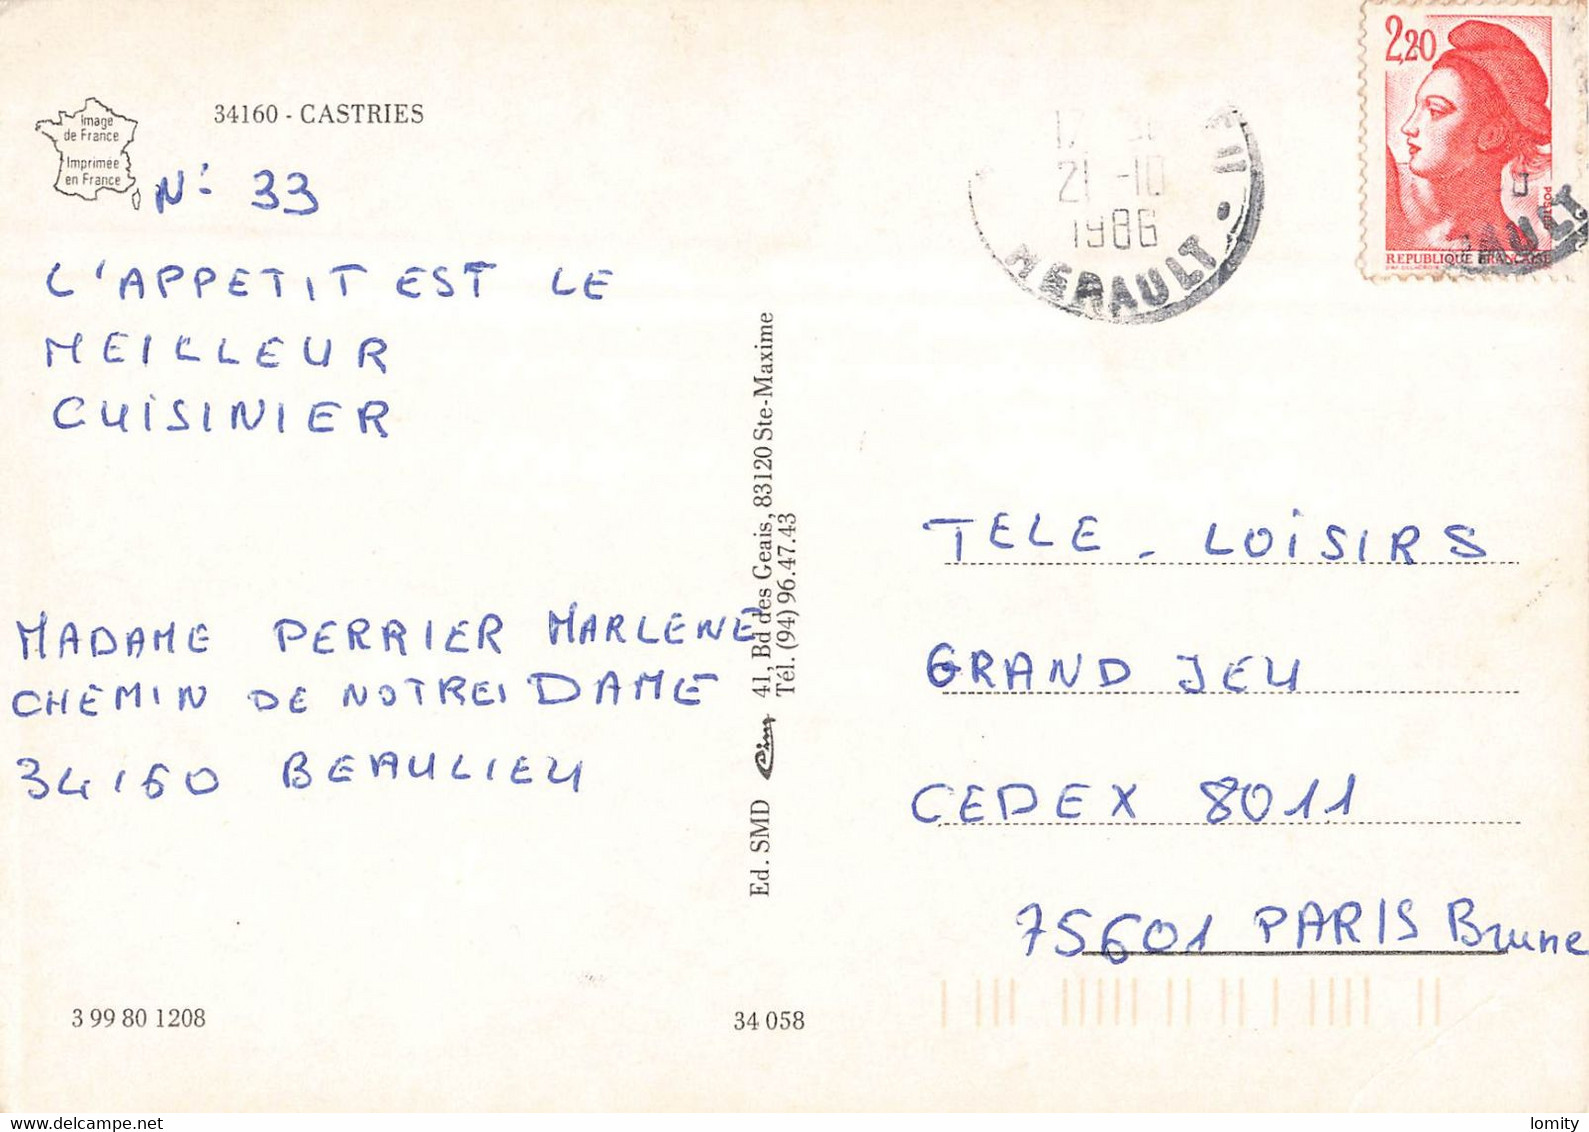 Image
de France
Imprimée
en France
34160 - CASTRIES
N° 33
L'APPETIT EST LE
MEILLEUR
CUISINIER
MADAME PERRIER MARLENE
CHEMIN DE NOTRE DAME
34160 BEAULIEU
3 99 80 1208
Ed. SMD Cim 41, Bd des Geais, 83120 Ste-Maxime
Tél. (94) 96.47.43
34 058
21 -10
1986
HERAULT
2,20
POSTES
REPUBLIQUE FRANÇAISE
AULT
TELE - LOISIRS
GRAND JEU
CEDEX 8011
75601 PARIS Brune
lomity